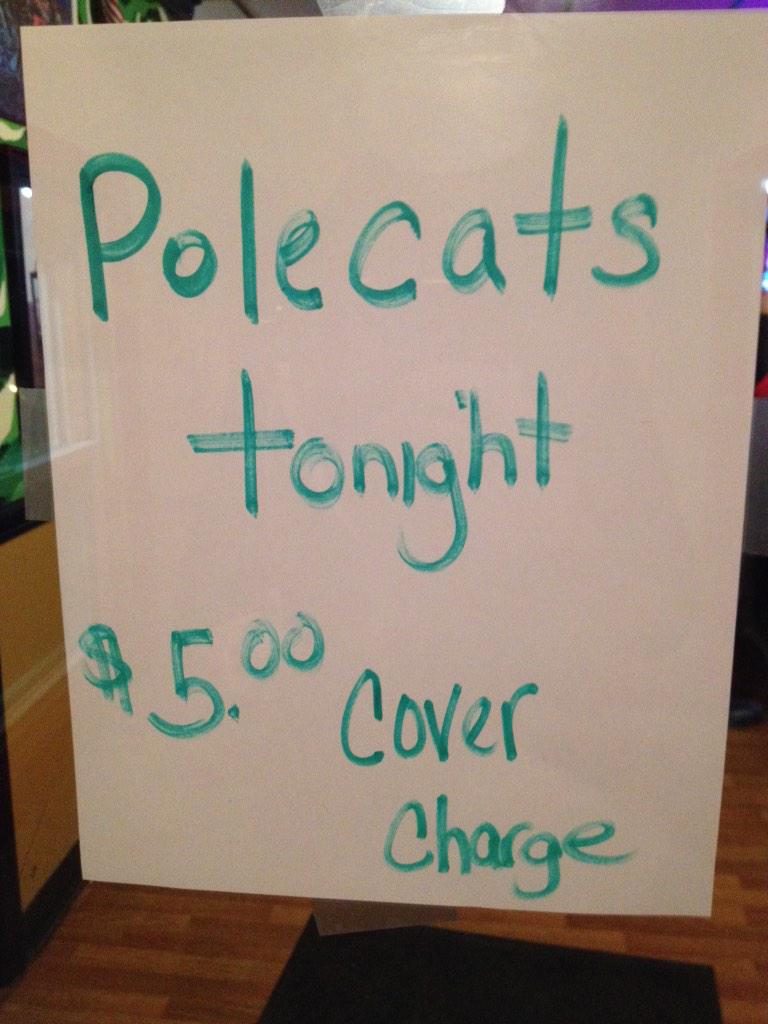 Polecats
tonight
$5.00 Cover
Charge